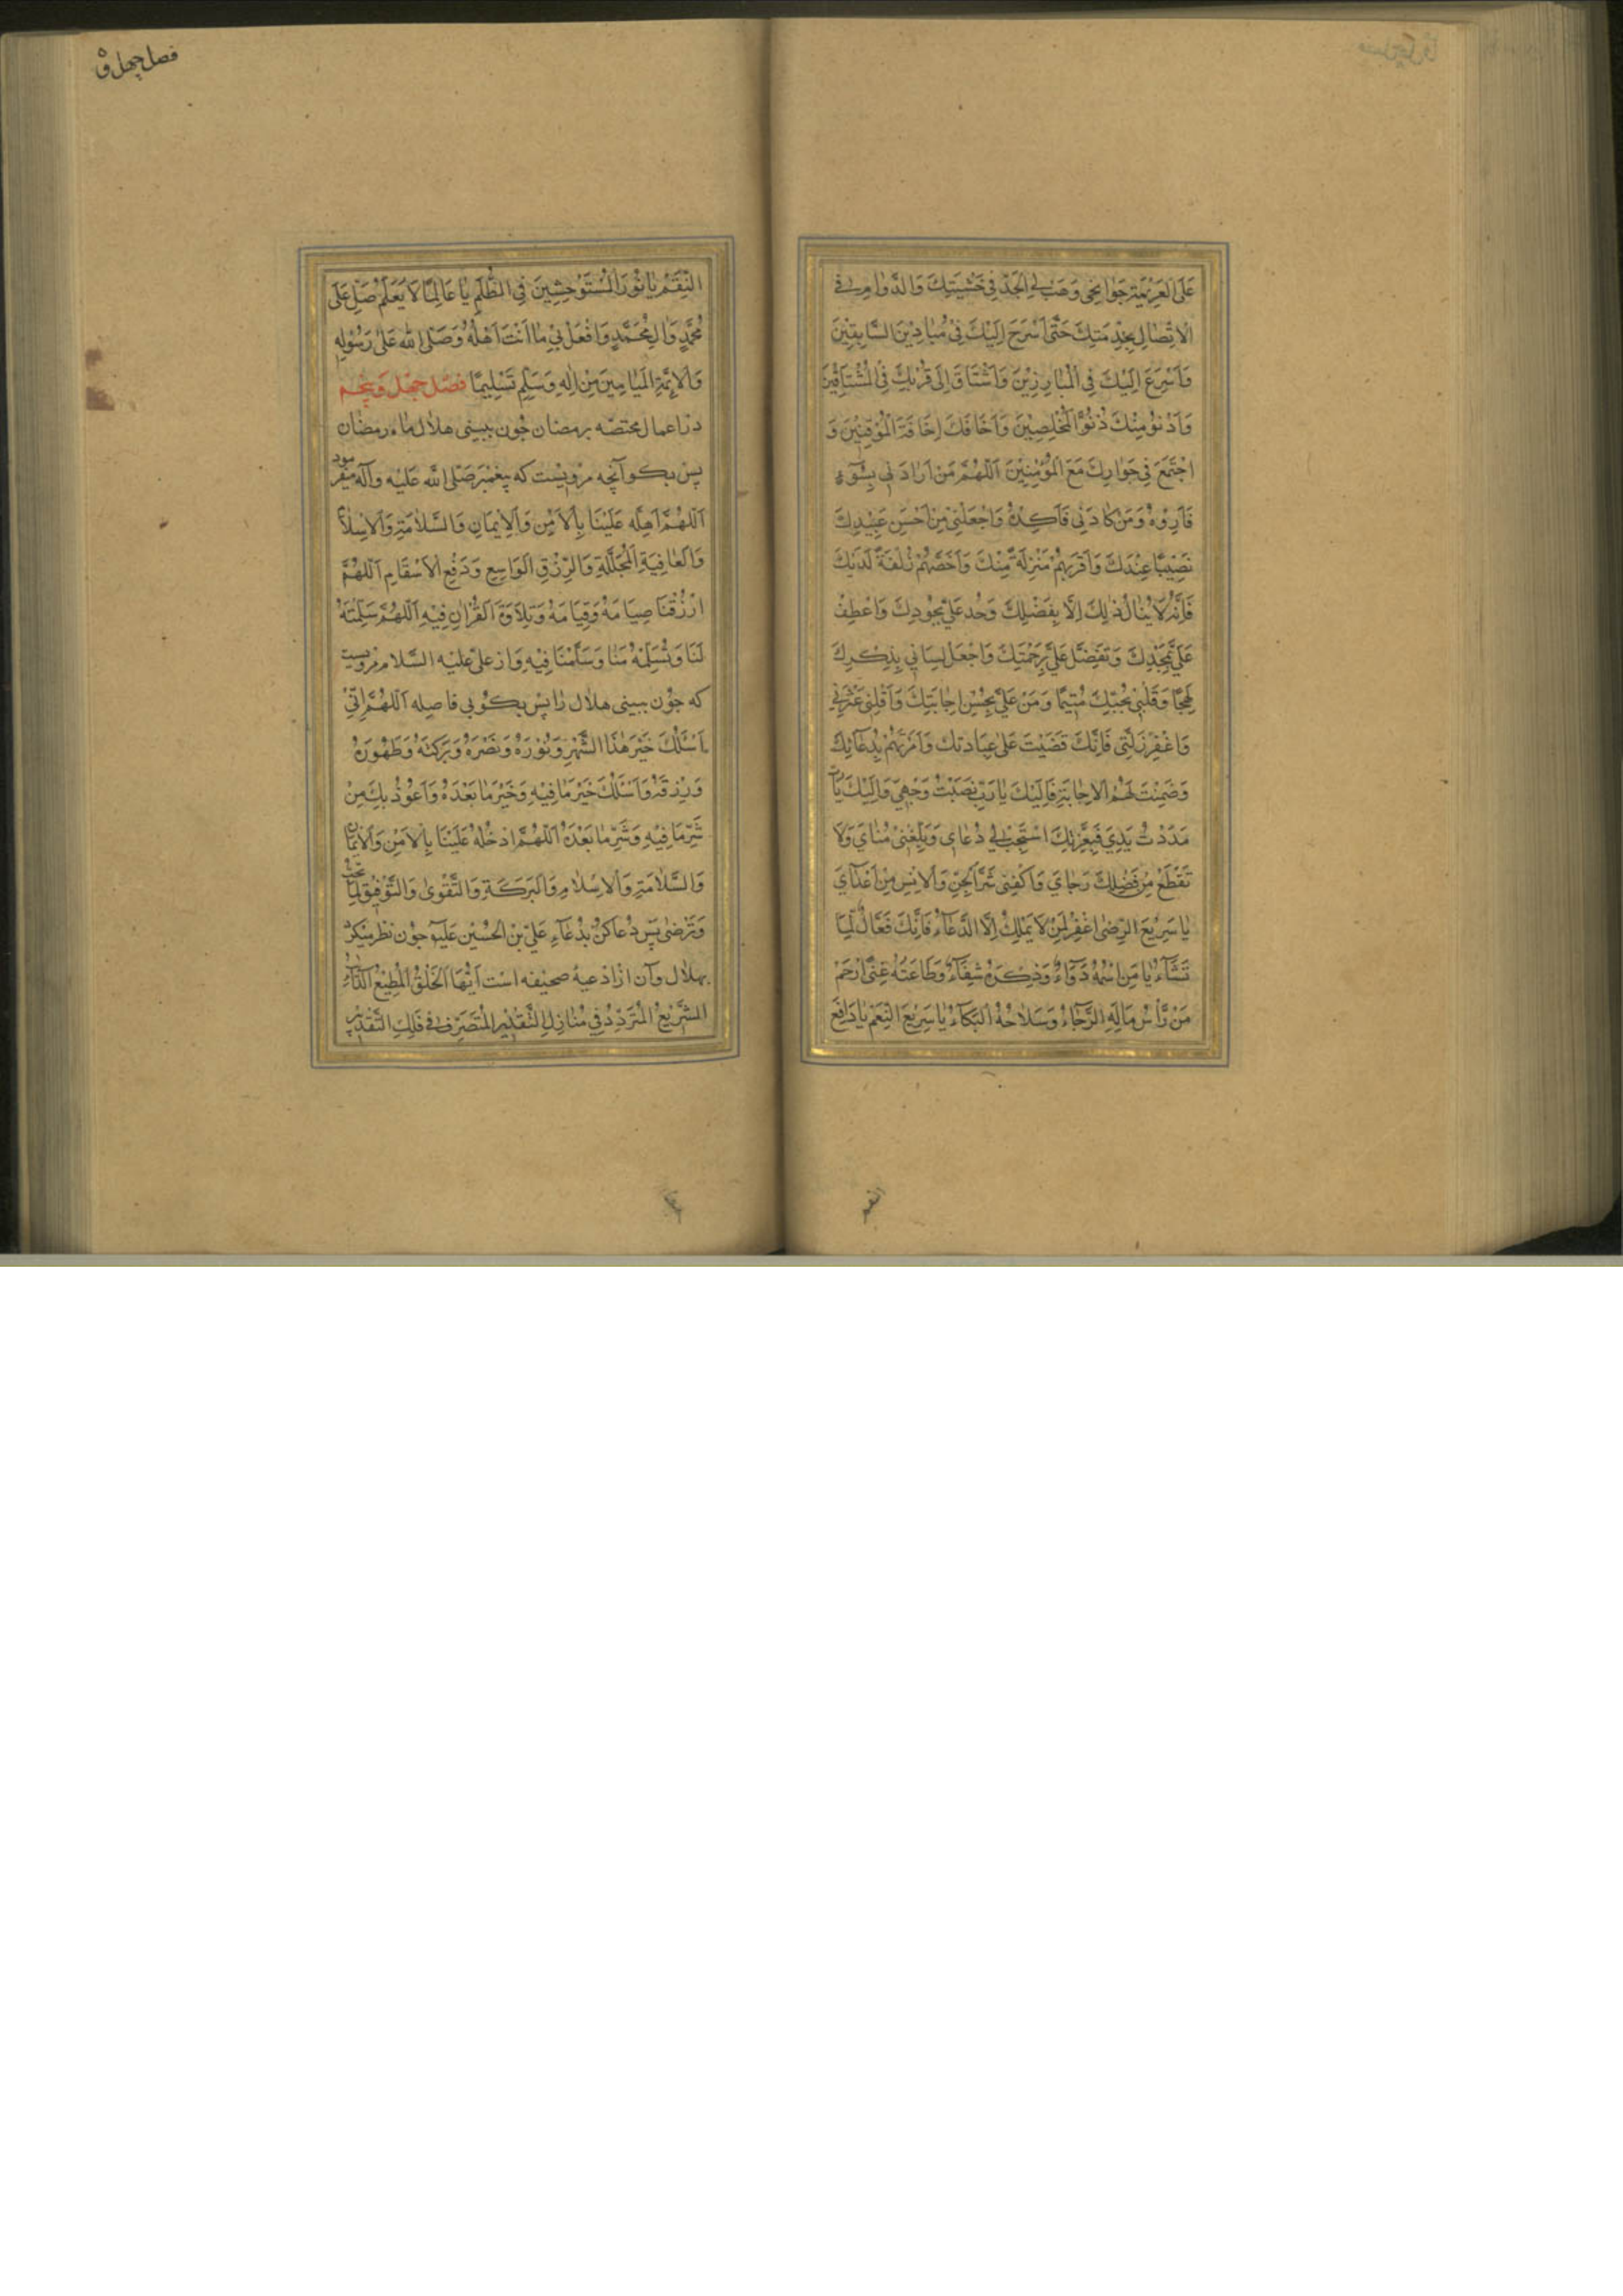 عَلَى الْعَزِيمَةِ جَوَانِحِي وَهَبْ لِيَ الْجِدَّ فِي خَشْيَتِكَ وَالدَّوَامَ فِي
الْاِتِّصَالِ بِخِدْمَتِكَ حَتَّى أَسْرَحَ إِلَيْكَ فِي مَيَادِينِ السَّابِقِينَ
وَأُسْرِعَ إِلَيْكَ فِي الْمُبَارِزِينَ وَأَشْتَاقَ إِلَى قُرْبِكَ فِي الْمُشْتَاقِينَ
وَأَدْنُوَ مِنْكَ دُنُوَّ الْمُخْلِصِينَ وَأَخَافَكَ إِخَافَةَ الْمُوقِنِينَ وَ
اجْتَمِعَ فِي جِوَارِكَ مَعَ الْمُؤْمِنِينَ اَللّٰهُمَّ مَنْ أَرَادَنِي بِسُوءٍ
فَأَرِدْهُ وَمَنْ كَادَنِي فَكِدْهُ وَاجْعَلْنِي مِنْ أَحْسَنِ عَبِيدِكَ
نَصِيبًا عِنْدَكَ وَأَقْرَبِهِمْ مَنْزِلَةً مِنْكَ وَأَخَصِّهِمْ زُلْفَةً لَدَيْكَ
فَإِنَّهُ لَا يُنَالُ ذٰلِكَ إِلَّا بِفَضْلِكَ وَجُدْ عَلَيَّ بِجُودِكَ وَاعْطِفْ
عَلَيَّ بِمَجْدِكَ وَتَفَضَّلْ عَلَيَّ بِرَحْمَتِكَ وَاجْعَلْ لِسَانِي بِذِكْرِكَ
لَهِجًا وَقَلْبِي بِحُبِّكَ مُتَيَّمًا وَمُنَّ عَلَيَّ بِحُسْنِ إِجَابَتِكَ وَأَقِلْنِي عَثْرَتِي
وَاغْفِرْ زَلَّتِي فَإِنَّكَ قَضَيْتَ عَلَى عِبَادَتِكَ وَأَمَرْتَهُمْ بِدُعَائِكَ
وَضَمِنْتَ لَهُمُ الْإِجَابَةَ فَإِلَيْكَ يَا رَبِّ نَصَبْتُ وَجْهِي وَإِلَيْكَ يَا رَبِّ
مَدَدْتُ يَدِي فَبِعِزَّتِكَ اسْتَجِبْ لِي دُعَايِ وَبَلِّغْنِي مُنَايَ وَلَا
تَقْطَعْ مِنْ فَضْلِكَ رَجَايَ وَاكْفِنِي شَرَّ الْجِنِّ وَالْإِنْسِ مِنْ أَعْدَايَ
يَا سَرِيعَ الرِّضٰى اغْفِرْ لِمَنْ لَا يَمْلِكُ إِلَّا الدُّعَاءَ فَإِنَّكَ فَعَّالٌ لِمَا
تَشَاءُ يَا مَنِ اسْمُهُ دَوَاءٌ وَذِكْرُهُ شِفَاءٌ وَطَاعَتُهُ غِنًى ارْحَمْ
مَنْ رَأْسُ مَالِهِ الرَّجَاءُ وَسِلَاحُهُ الْبُكَاءُ يَا سَرِيعَ النِّعَمِ يَا دَافِعَ
النقم
فصل چهل و ۵
النِّقَمِ يَا نُورَ الْمُسْتَوْحِشِينَ فِي الظُّلَمِ يَا عَالِمًا لَا يُعَلَّمُ صَلِّ عَلَى
مُحَمَّدٍ وَاٰلِ مُحَمَّدٍ وَافْعَلْ بِي مَا أَنْتَ أَهْلُهُ وَصَلَّى اللّٰهُ عَلٰى رَسُولِهِ
وَالْأَئِمَّةِ الْمَيَامِينَ مِنْ اٰلِهِ وَسَلَّمَ تَسْلِيمًا فصل چهل و پنجم
در اعمال مختصّه برمضان چون ببینی هلال ماه رمضان
پس بگو آنچه مرویست که پیغمبر صَلَّى اللّٰه عَلَيْه وآله میفرمود
اَللّٰهُمَّ أَهِلَّهُ عَلَيْنَا بِالْأَمْنِ وَالْإِيمَانِ وَالسَّلَامَةِ وَالْإِسْلَامِ
وَالْعَافِيَةِ الْمُجَلَّلَةِ وَالرِّزْقِ الْوَاسِعِ وَدَفْعِ الْأَسْقَامِ اَللّٰهُمَّ
ارْزُقْنَا صِيَامَهُ وَقِيَامَهُ وَتِلَاوَةَ الْقُرْاٰنِ فِيهِ اَللّٰهُمَّ سَلِّمْهُ
لَنَا وَتُسَلِّمْهُ مِنَّا وَسَلِّمْنَا فِيهِ وَاز علی علیه السّلام مرویست
که چون ببینی هلال را پس بگو بی فاصله اَللّٰهُمَّ إِنِّي
أَسْئَلُكَ خَيْرَ هٰذَا الشَّهْرِ وَنُورَهُ وَنَصْرَهُ وَبَرَكَتَهُ وَطَهُورَهُ
وَرِزْقَهُ وَأَسْئَلُكَ خَيْرَ مَا فِيهِ وَخَيْرَ مَا بَعْدَهُ وَأَعُوذُ بِكَ مِنْ
شَرِّ مَا فِيهِ وَشَرِّ مَا بَعْدَهُ اَللّٰهُمَّ ادْخِلْهُ عَلَيْنَا بِالْأَمْنِ وَالْإِيمَانِ
وَالسَّلَامَةِ وَالْإِسْلَامِ وَالْبَرَكَةِ وَالتَّقْوٰى وَالتَّوْفِيقِ لِمَا تُحِبُّ
وَتَرْضٰى پس دعا کن بدعاء عَلِيّ بْن الْحُسَيْن چون نظر میکرد
بهلال وآن از ادعیهٔ صحیفه است أَيُّهَا الْخَلْقُ الْمُطِيعُ الدَّائِبُ
السَّرِيعُ الْمُتَرَدِّدُ فِي مَنَازِلِ التَّقْدِيرِ الْمُتَصَرِّفُ فِي فَلَكِ التَّدْبِيرِ